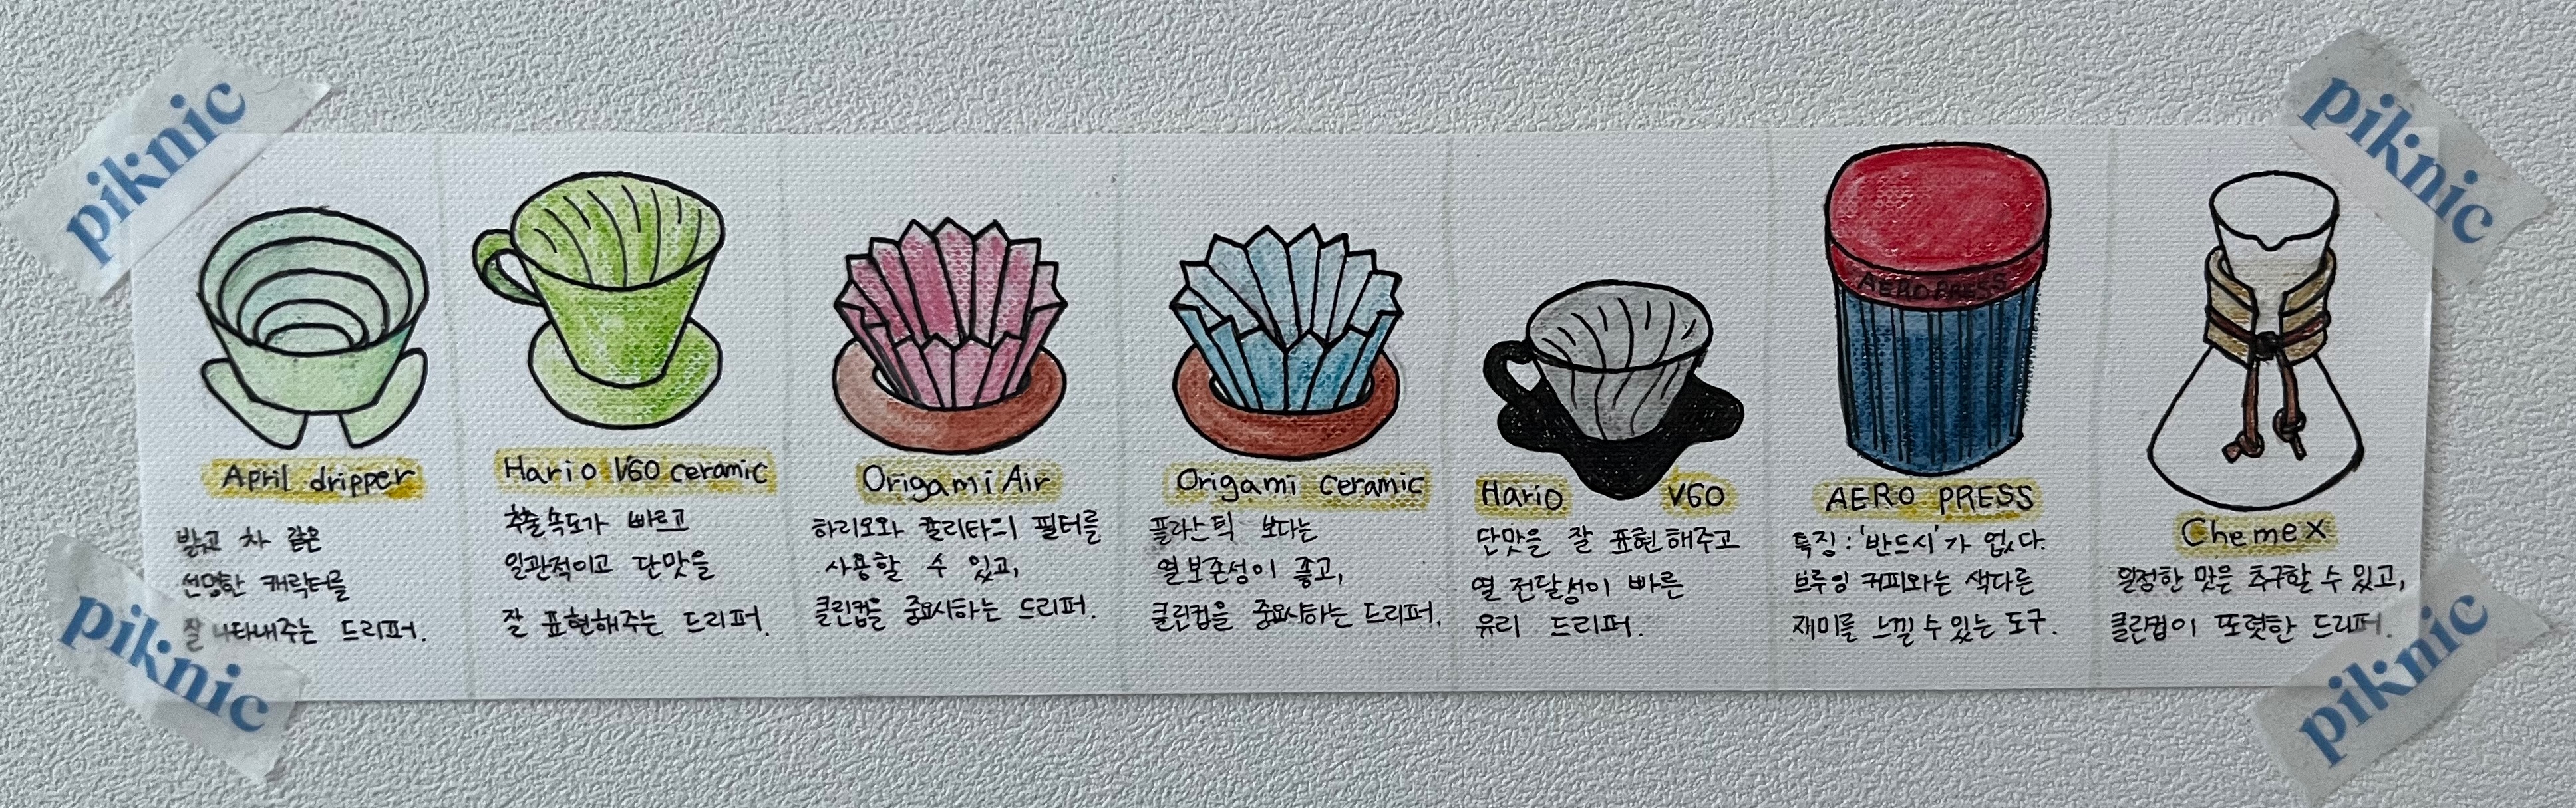 piknic
piknic
April dripper
밝고 차 같은
선명한 캐릭터를
잘 나타내주는 드리퍼.
Hario V60 ceramic
추출속도가 빠르고
일관적이고 단맛을
잘 표현해주는 드리퍼.
Origami Air
하리오와 칼리타의 필터를
사용할 수 있고,
클린컵을 중요시하는 드리퍼.
Origami ceramic
플라스틱 보다는
열보존성이 좋고,
클린컵을 중요시하는 드리퍼.
Hario V60
단맛을 잘 표현해주고
열 전달성이 빠른
유리 드리퍼.
AEROPRESS
AERO PRESS
특징 : '반드시'가 없다.
브루잉 커피와는 색다른
재미를 느낄 수 있는 도구.
Chemex
일정한 맛은 추구할 수 있고,
클린컵이 또렷한 드리퍼.
piknic
piknic